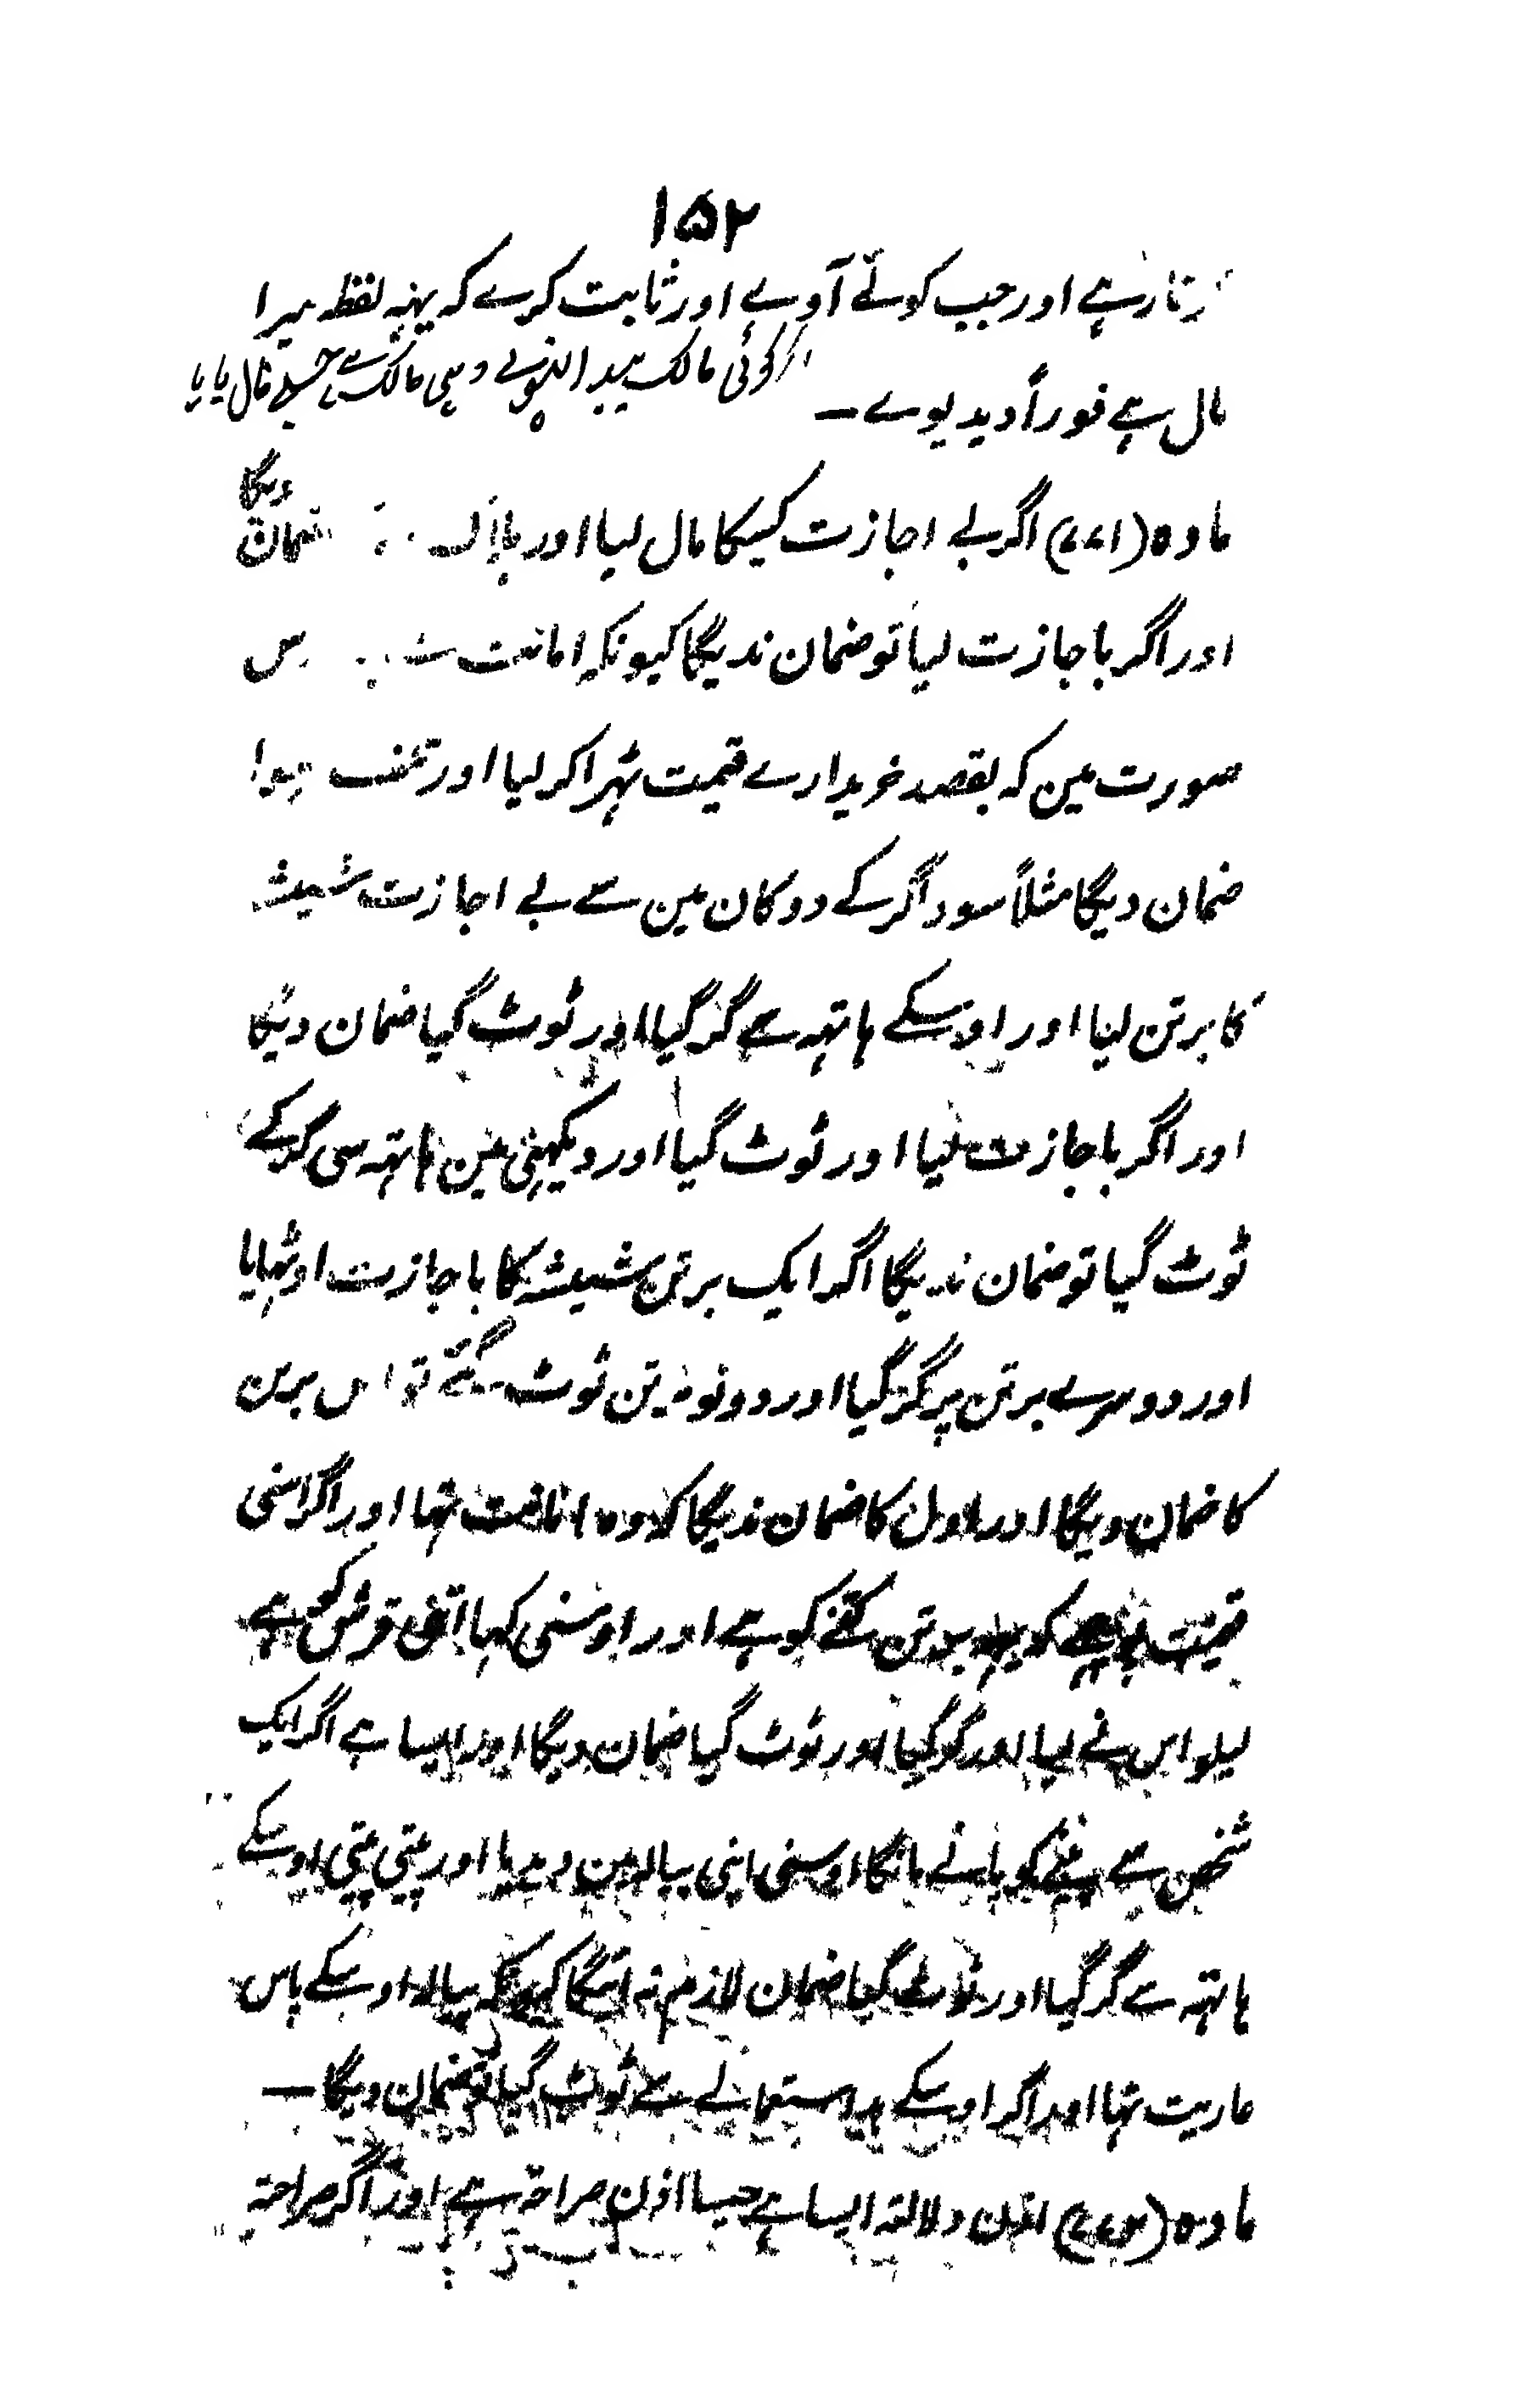 ۱۵۲
رہے اور جب کوئے آوے اور ثابت کرے کہ یہہ لفظہ میرا
مال ہے فوراً دیدیوے۔
کوئی مالک پیدا نہووے وہی مالک ہے جسنے مال پایا
مادہ (۷۷۱) اگر بے اجازت کسیکا مال لیا اور ہلاک ضمان دیگا
اور اگر باجازت لیا تو ضمان ندیگا کیونکہ امانت
صورت مین کہ بقصد خریدارے قیمت ٹہرا کر لیا اور تلف ہوا
ضمان دیگا مثلاً سوداگر کے دوکان مین سے بے اجازت شیشہ
کا برتن لیا اور اوسکے ہاتہہ سے گر گیا اور ٹوٹ گیا ضمان دیگا
اور اگر باجازت لیا اور ٹوٹ گیا اور دیکہنی مین ہاتہہ سی گر کے
ٹوٹ گیا تو ضمان ندیگا اگر ایک برتن شیشہ کا باجازت اوٹہایا
اور دوسرے برتن پر گر گیا اور دونو برتن ٹوٹ گئے تو اس برتن
کا ضمان دیگا اور اول کا ضمان ندیگا کہ وہ امانت تہا اور اگر اسنی
قیمت کہ یہہ برتن کتنے کو ہے اور اوسنی کہا اتنی قرش کو ہے
لیلو اس نے لیا اور گر گیا اور ٹوٹ گیا ضمان دیگا اور ایسا ہے اگر ایک
شخص سے پینے کو پانے مانگا اوسنی اپنی پیالہ مین دیدیا اور پیتی پیتی اوسکے
ہاتہہ سے گر گیا اور ٹوٹ گیا ضمان لازم نہ آئیگا کیونکہ پیالہ اوسکے پاس
عاریت تہا اور اگر اوسکے بد استعمالے سے ٹوٹ گیا تو ضمان دیگا۔
مادہ (۷۷۲) اذن دلالۃ ایسا ہے جیسا اذن صراحۃ ہے اور اگر صراحۃ